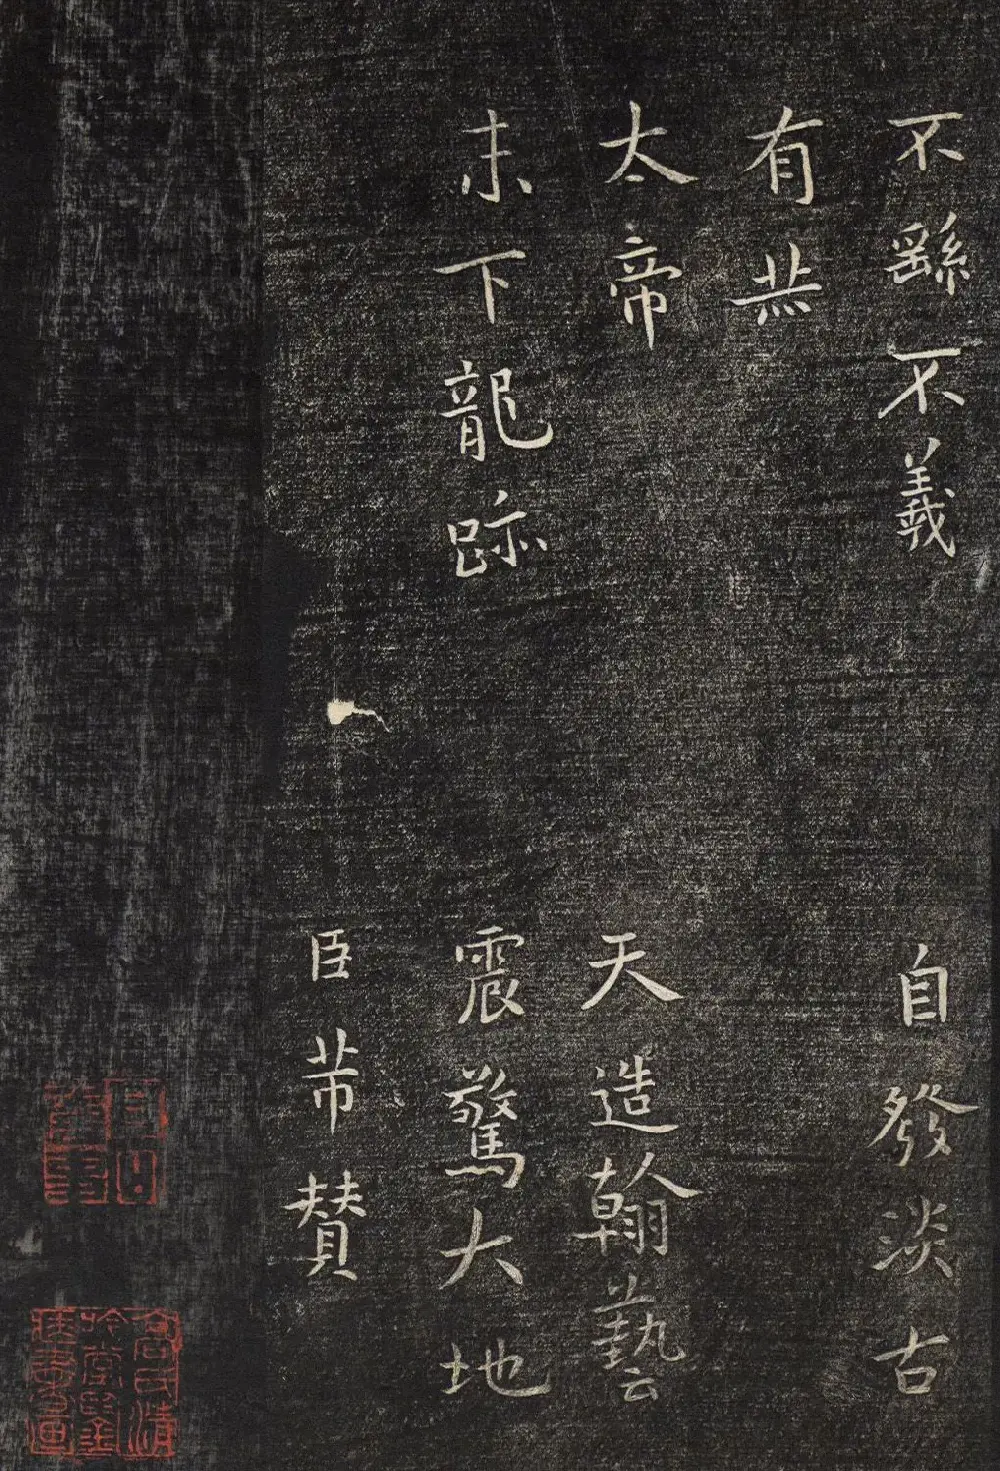 不繇不羲 自發淡古
有
太帝 天造翰藝
末下龍跡 震驚大地
臣芾贊